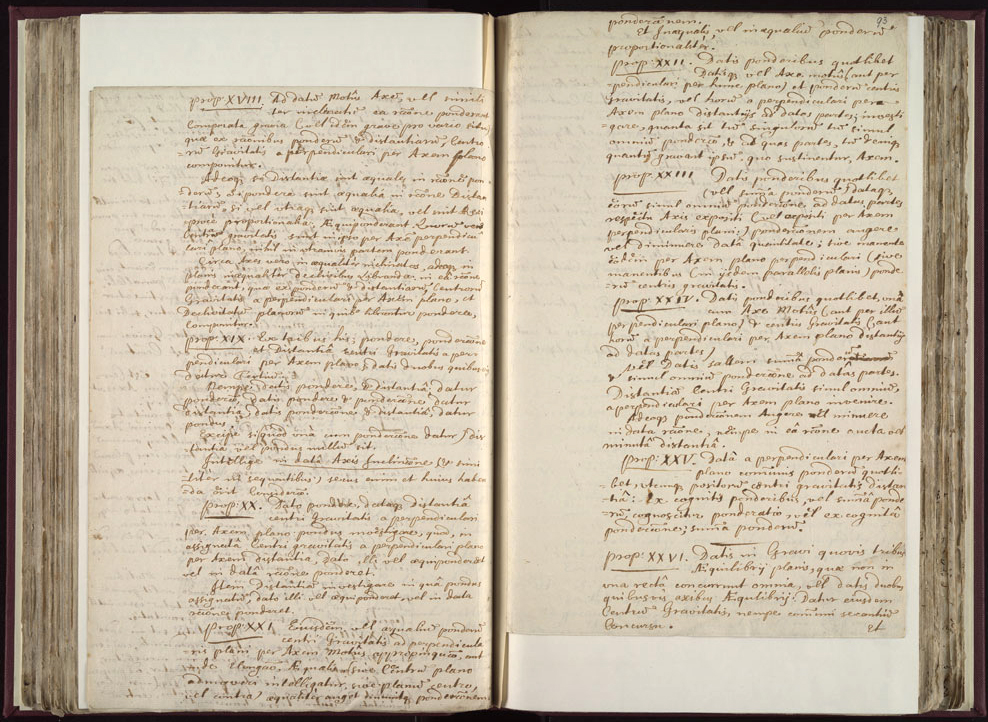 prop: XVIII. Ad datū Motûs Axē, vell simili
ter inclinatū ea rāone ponderat
Composita gravia (vel idem grave pro vario situ)
quæ ex rāonibus ponderū & distantiarū Centro
=rū Gravitatis a perpendiculari per Axem plano
componitur.
Adeoqꝫ si Distantiæ sint æquales in rāone pon
derū, si pondera sint æqualia in rāone Distan
tiarū, si vel utraqꝫ sint æqualia, vel sint Reci
procè proportionalia Æquiponderant. Quorū vero
Centra gravitatis sunt in ipso per Axē perpendicu
lari plano, nihil in alterutrā partem ponderant.
Circa Axes vero inæqualitèr inclinatos, adeoqꝫ in
planis inæqualiter declivibus librandæ, in eâ rāone
ponderant, quæ ex ponderū & distantiarū Centrorū
Gravitatis a perpendiculari per Axem plano, et
Declivitatū planorū in quibꝰ librantur pondera,
Componitur.
prop: XIX. Ex tribus his; pondere, ponderāone
et Distantiâ centri Gravitatis a perp
pendiculari per Axem plano, datis duobus quibusvis
datur Tertium.
Nempe datis pondere & distantiâ, datur
ponderāo, datis pondere & ponderāone datur
distantia, datis ponderāone & distantiâ, datur
pondus.
Excipe si quod unâ cum ponderāone datur, dis
tantia vel pondus nullū sit.
Intellige in datâ Axis Inclināone (& simi
=liter in sequentibus) secus enim et hujus haben
da erit Consideratio.
prop: XX. Dato pondere, datâqꝫ distantiâ
centri Gravitatis a perpendiculari
per Axem plano pondus investigare, quod, in
assignatâ Centri gravitatis a perpendiculari plano
per Axem distantia, dato illi vel æquiponderet
vel in datâ rāone ponderet.
Item Distantiâ investigare in quâ pondus
assignatū dato illi vel æquiponderet, vel in data
rāone ponderet.
prop: XXI. Ejusdem vel æqualiū ponderū
centri Gravitatis ad perpendicula
ris plani per Axem Motûs appropinquāo, aut
inde elongāo Æqualis (sive Centrū plano
admoveri intelligatur, sive planū centro,
vel contra) æqualiter auget diminuitqꝫ ponderāonem
93
ponderāonem.
Et Inæqualis, vel inæqualiū ponderū
proportionaliter.
prop: XXII. Datis ponderibus quotlibet
Datisqꝫ vel Axe motûs (aut per
=pendiculari per hunc plano) et ponderū centris
Gravitatis, vel horū a perpendiculari per
Axem plano Distantijs ad datas partes; investi
=gare, quanta sit tū singulorū tū simul
omniū ponderāo, & ad quas partes, tū deniqꝫ
quantū gravant ipsū, quo sustinentur, Axem.
prop: XXIII. Datis ponderibus quotlibet
(vell sum̄â ponderū) dataqꝫ
eorū simul omniū ponderāone, ad datas partes
respectu Axis expositi (vel expositi per Axem
perpendicularis plani:) ponderāonem augere
vel diminuere datâ quantitate; sive manente
eodem per Axem plano perpendiculari (sive
manentibus (in ijsdem parallelis planis) ponde
=rū centris gravitatis.
prop: XXIV. Datis ponderibus quotlibet, unâ
cum Axe Motûs (aut per illū
perpendiculari plano) & centris Gravitatis (aut
horū a perpendiculari per Axem plano distantijs
ad datas partes)
Vel Datis saltem sum̄â ponderū
& simul omniū ponderāone ad datas partes.
Distantiâ Centri Gravitatis simul omniū,
a perpendiculari per Axem plano invenire.
Adeoqꝫ ponderāonem Augere vel minuere
in data rāone, nempe in eâ rāone auctâ vel
minutâ distantiâ.
prop: XXV. Datâ a perpendiculari per Axem
plano communis ponderū quotli
=bet, utcunqꝫ positorū centri gravitatis distan
=tiâ: Ex cognitis ponderibus, vel sum̄â ponde
=rū, cognoscitur ponderatio, vel ex cognitâ
ponderāone, summa ponderū.
prop: XXVI. Datis in Gravi quovis tribus
Æquilibrij planis, quæ non in
una rectâ concurrunt omnia, vel datis duobus
quibusvis axibus Æquilibrij: Datur ejusdem
Centrū Gravitatis, nempe com̄uni secantiū
Concursu.
Et